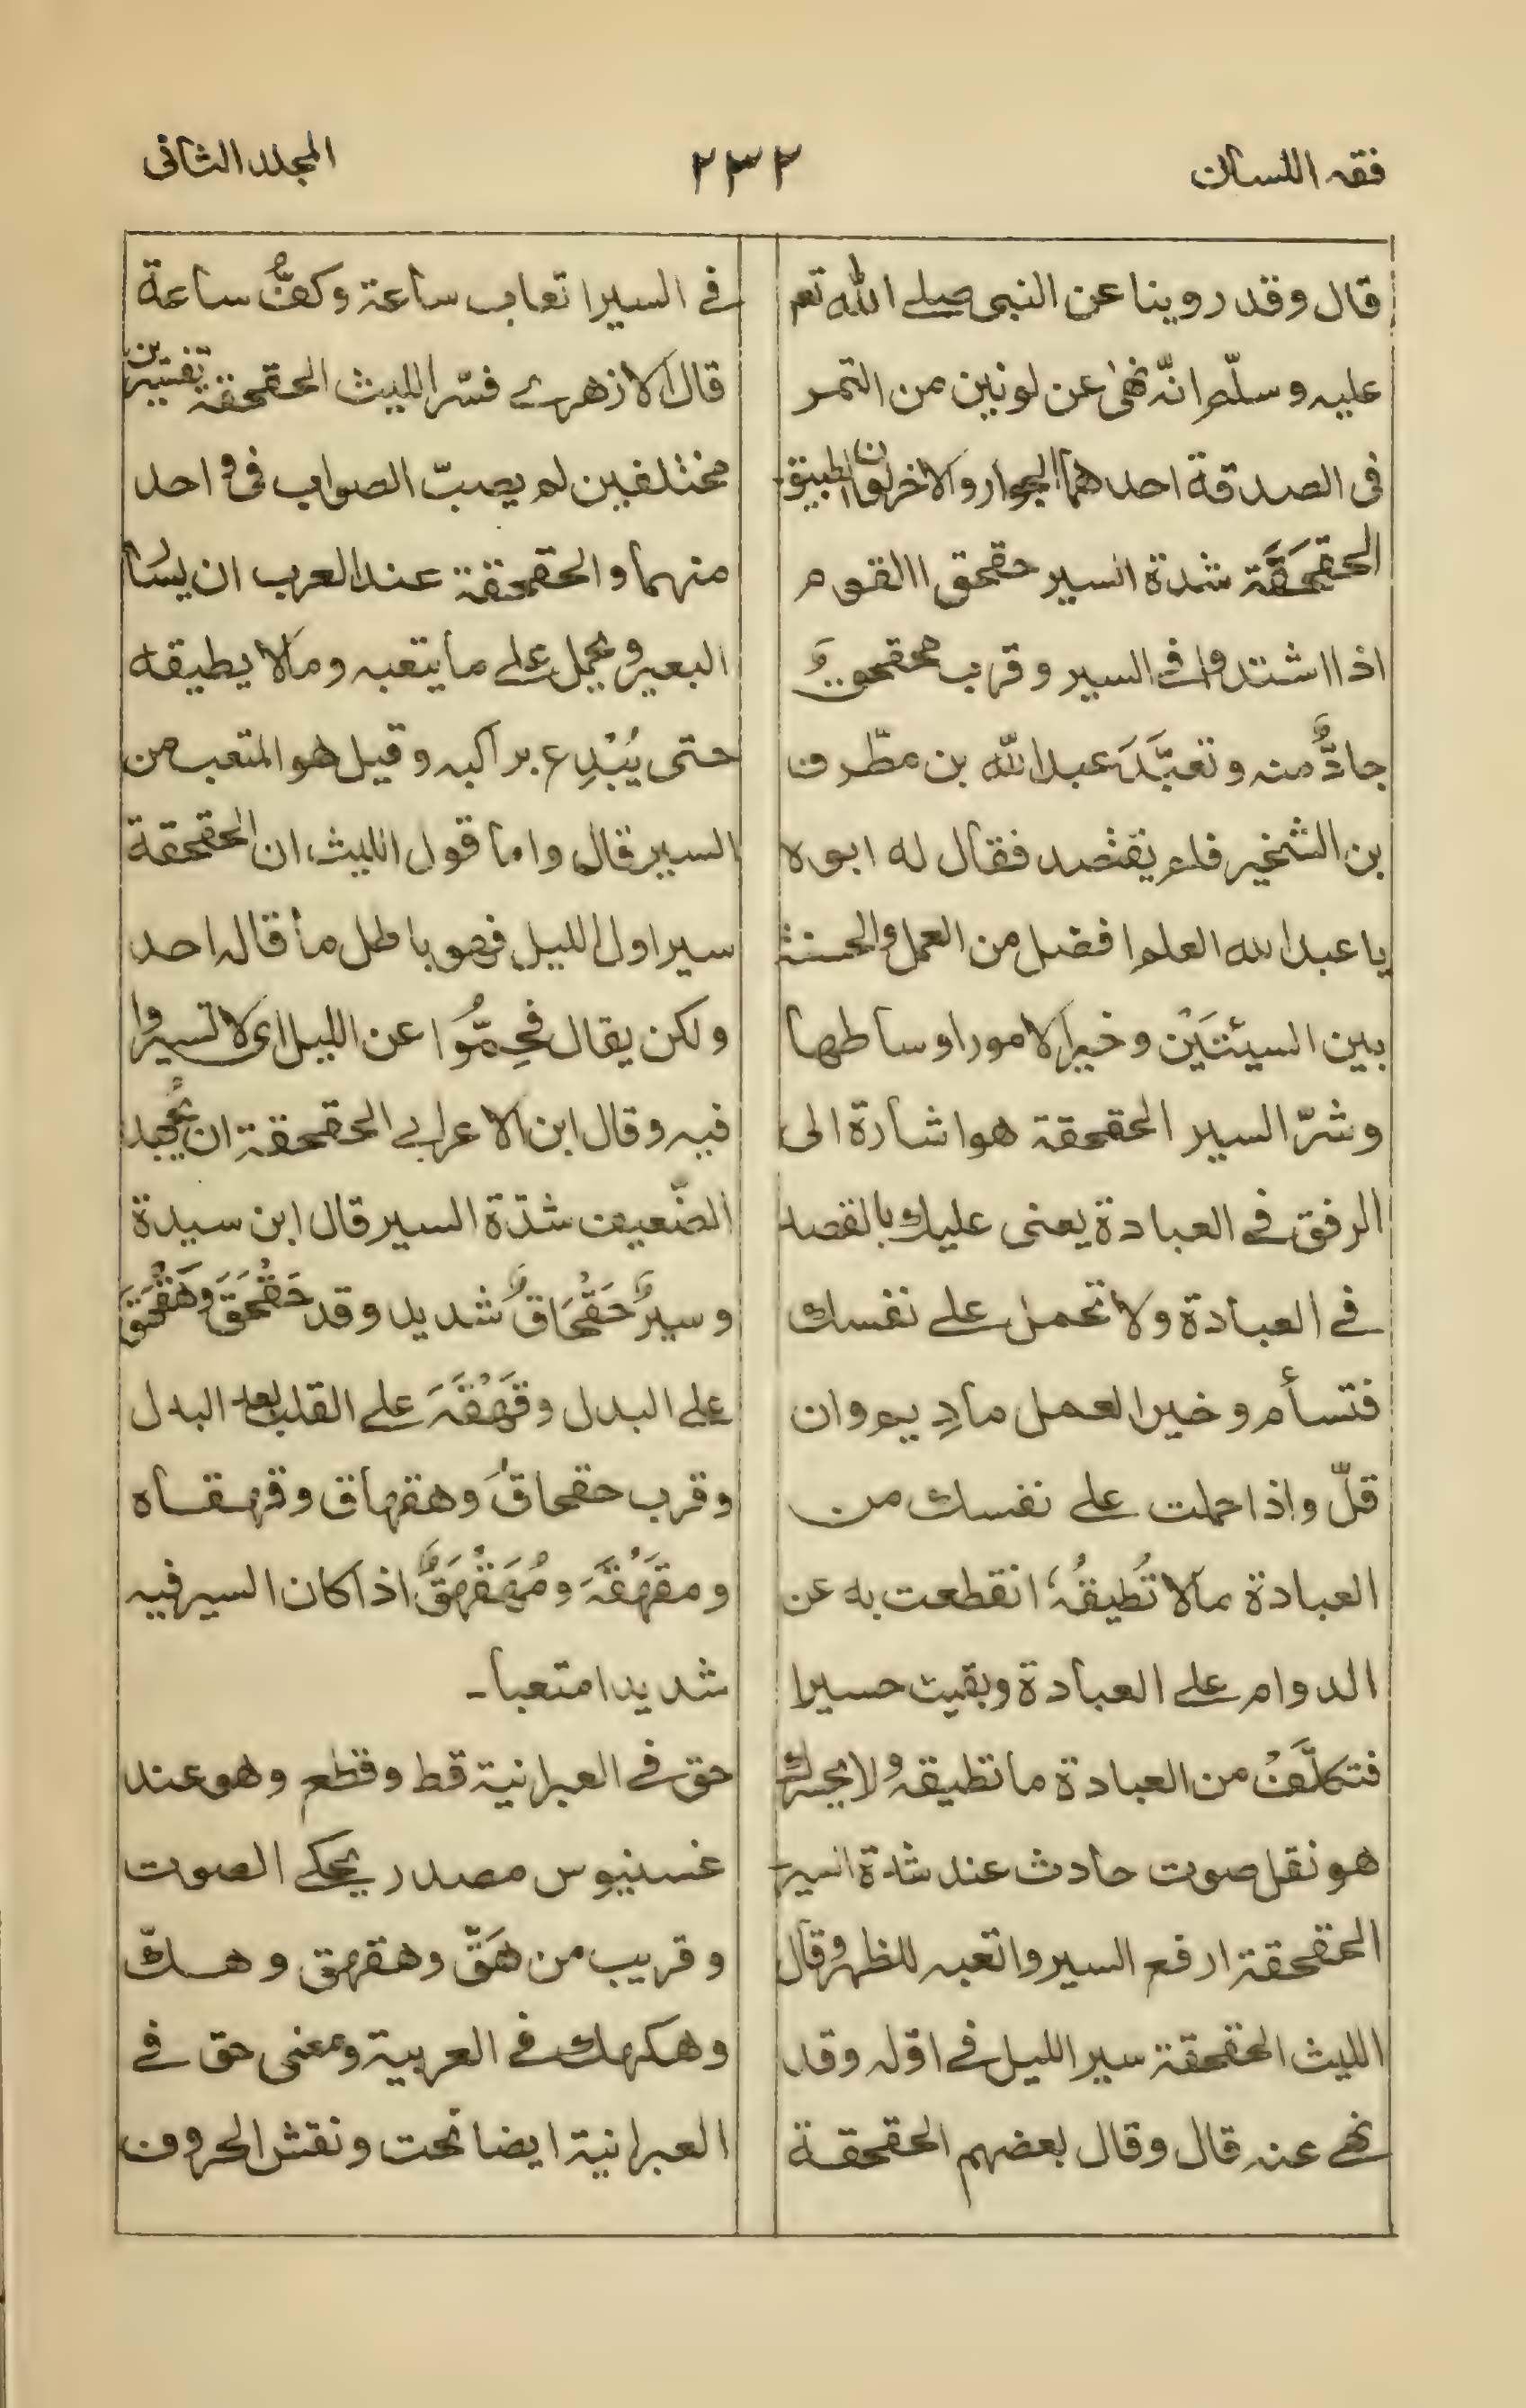 فقه اللسان
٢٣٢
المجلد الثانى
قال وقد روينا عن النبى صلے الله تعـ
عليه وسلّم انّه نهىٰ عن لونين من التمر
فى الصدقة احدهما الجوار والاخر لون
الحَقحَقَة شدة السير حقحق القوم
اذا اشتدوا فے السير وقرب محقحق
جادٌّ منه وتعبَّدَ عبد الله بن مطّرف
بن الشخير فلم يقتصد فقال له ابوه
يا عبد الله العلم افضل من العمل والحسنة
بين السيئتَيْن وخير الامور اوساطها
وشرّ السير الحقحقة هو اشارة الى
الرفق فے العبادة يعنى عليك بالقصد
فے العبادة ولا تحمل علے نفسك
فتسأم وخير العمل ما دِيم وان
قلّ واذا حملت علے نفسك من
العبادة مالا تُطيقُهٗ انقطعت به عن
الدوام علے العبادة وبقيت حسيرا
فتكلَّفْ من العبادة ما تطيقه ولا يحسرك
هو نقل صوت حادث عند شدة السير
الحقحقة ارفع السير واتعبه للظهر وقال
الليث الحقحقة سير الليل فے اوّله وقد
نهے عنه قال وقال بعضهم الحقحقة
فے السير اتعاب ساعة وكفُّ ساعة
قال الازهرے فسّر الليث الحقحقة تفسيرين
مختلفين لم يصبّ الصواب فى واحد
منهما والحقحقة عند العرب ان يسَار
البعير ويحمل علے ما يتعبه ومالا يطيقه
حتى يُبْدِع براكبه وقيل هو المتعب من
السير قال واما قول الليث ان الحقحقة
سير اول الليل فهو باطل ما قاله احد
ولكن يقال فَحِمُّوا عن الليل اى لا تسيروا
فيه وقال ابن الاعرابے الحقحقة ان يُجهد
الضّعيف شدّة السير قال ابن سيدة
وسيرٌ حَقْحَاقٌ شديد وقد حَقْحَقَ وهَقْهَقَ
علے البدل وقَهْقَهَ علے القلب بعد البدل
وقرب حقحاقٌ وهقهاق وقهقاه
ومقَهْقَه ومُهَقْهَقٌ اذا كان السير فيه
شديدا متعبا۔
حق فے العبرانية قط وقطع وهو عند
غسنيوس مصدر يحكے الصوت
وقريب من هَقّ وهقهق وهكّ
وهكهك فے العربية ومعنى حق فے
العبرانية ايضا نحت ونقش الحروف